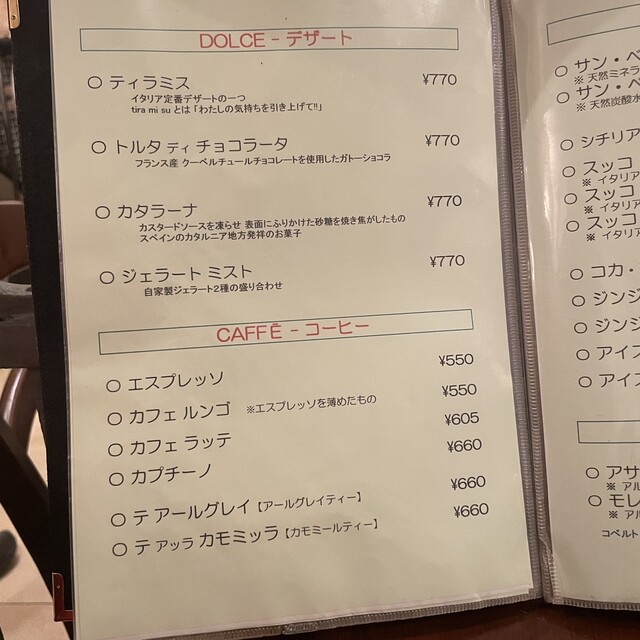 DOLCE - デザート
○ ティラミス ¥770
イタリア定番デザートの一つ
tira mi su とは「わたしの気持ちを引き上げて!!」
○ トルタ ディ チョコラータ ¥770
フランス産 クーベルチュールチョコレートを使用したガトーショコラ
○ カタラーナ ¥770
カスタードソースを凍らせ 表面にふりかけた砂糖を焼き焦がしたもの
スペインのカタルニア地方発祥のお菓子
○ ジェラート ミスト ¥770
自家製ジェラート2種の盛り合わせ
CAFFĒ - コーヒー
○ エスプレッソ ¥550
○ カフェ ルンゴ ※エスプレッソを薄めたもの ¥550
○ カフェ ラッテ ¥605
○ カプチーノ ¥660
○ テ アールグレイ【アールグレイティー】 ¥660
○ テ アッラ カモミッラ【カモミールティー】 ¥660
○ サン・ベ
※ 天然ミネラ
○ サン・ベ
※ 天然炭酸水
○ シチリア
○ スッコ
※ イタリア
○ スッコ
※ イタリア
○ スッコ
※ イタリア
○ コカ・
○ ジンジ
○ ジンジ
○ アイス
○ アイス
○ アサ
※ アル
○ モレ
※ アル
コベルト